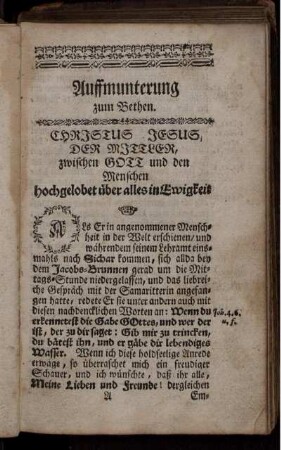 Auffmunterung
zum Bethen.
CHRISTUS JESUS,
DER MITTLER,
zwischen GOTT und den
Menschen
hochgelobet über alles in Ewigkeit
ALs Er in angenommener Mensch-
heit in der Welt erschienen/ und
währendem seinem Lehramt eins-
mahls nach Sichar kommen, sich allda bey
dem Jacobs-Brunnen gerad um die Mit-
tags-Stunde niedergelassen/ und das liebrei-
che Gespräch mit der Samaritterin angefan-
gen hatte/ redete Er sie unter andern auch mit
diesen nachdencklichen Worten an: Wenn du
erkennetest die Gabe GOttes, und wer der
ist, der zu dir saget: Gib mir zu trincken,
du bätest ihn, und er gäbe dir lebendiges
Wasser. Wenn ich diese holdseelige Anrede
erwäge, so überraschet mich ein freudiger
Schauer, und ich wünschte, daß ihr alle,
Meine Lieben und Freunde! dergleichen
A Em-